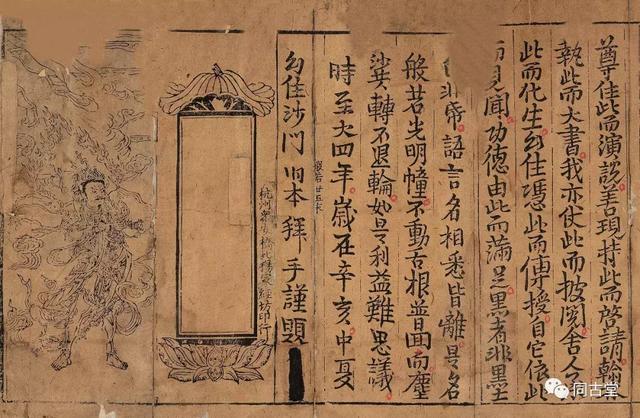 尊住此而演說善現持此而啓請翰
執此而大書我亦仗此而披閱舍人
此而化生幻住憑此而傳授自它依此
而見聞功德由此而滿足黑者非黑
語言名相悉皆離是名
般若光明幢不動舌根普面而塵
轉不退輪如是利益難思議
時至大四年歲在辛亥中夏
般若廿五末
幻住沙門 明本 拜手謹題
杭州衆安橋北楊家經坊印行
同古堂